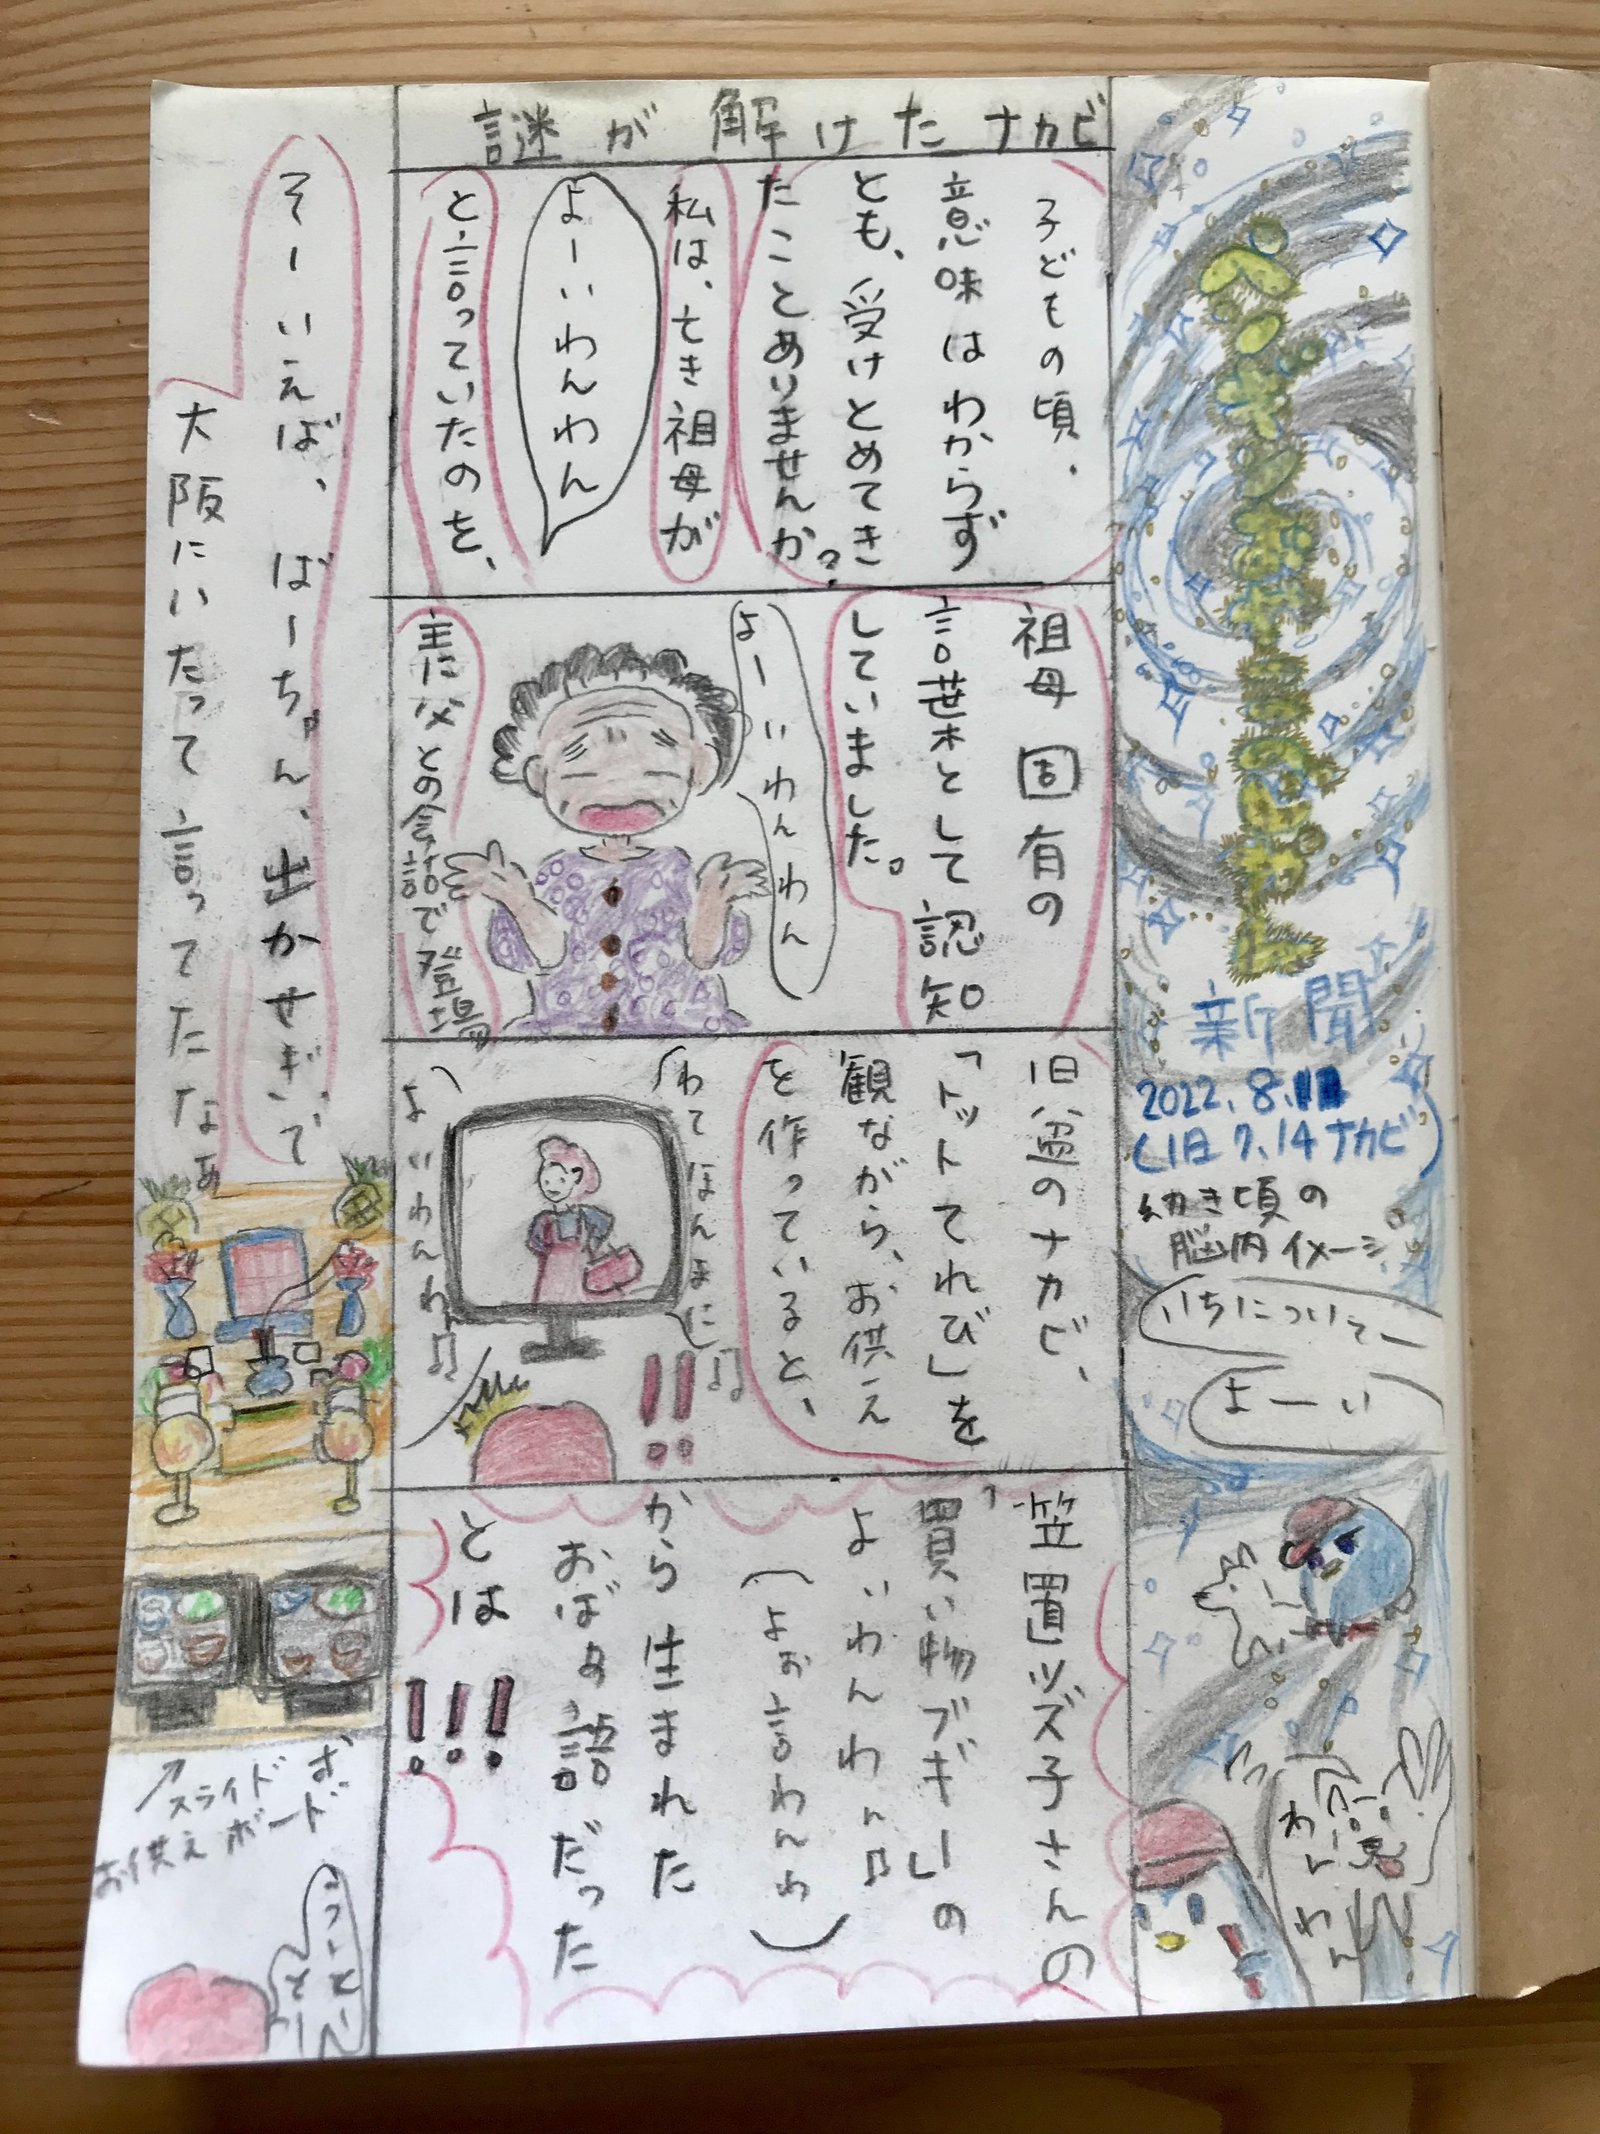 新聞
2022.8.11
(旧7.14ナカビ)
幼き頃の
脳内イメージ
いちについてー
よーい
わんわん
謎が解けたナカビ
子どもの頃、
意味はわからず
とも、受けとめてき
たことありませんか?
私は、亡き祖母が
よーいわんわん
と言っていたのを、
祖母固有の
言葉として認知
していました。
よーいわんわん
主に父との会話で登場
旧盆のナカビ、
「トットてれび」を
観ながら、お供え
を作っていると、
わてほんまに♫
よーいわんわ♫
!!
笠置シヅ子さんの
「買い物ブギー」の
よいわんわん♫
(よぉ言わんわ)
から生まれた
おばぁ語だった
とは
!!!
そーいえば、ばーちゃん、出かせぎで
大阪にいたって言ってたなぁ
↗スライド
お供えボード